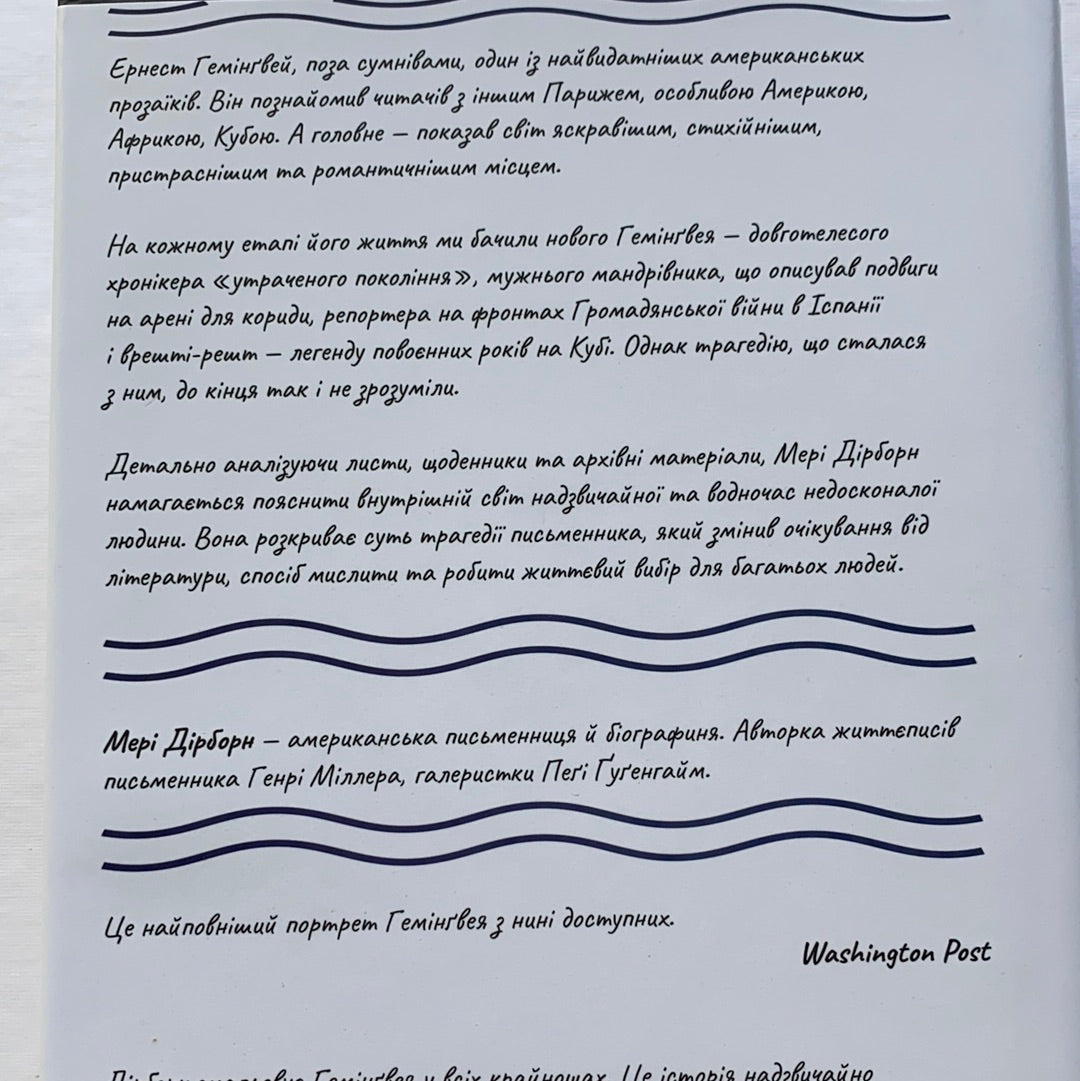 Ернест Гемінґвей, поза сумнівами, один із найвидатніших американських
прозаїків. Він познайомив читачів з іншим Парижем, особливою Америкою,
Африкою, Кубою. А головне — показав світ яскравішим, стихійнішим,
пристраснішим та романтичнішим місцем.
На кожному етапі його життя ми бачили нового Гемінґвея — довготелесого
хронікера «утраченого покоління», мужнього мандрівника, що описував подвиги
на арені для кориди, репортера на фронтах Громадянської війни в Іспанії
і врешті-решт — легенду повоєнних років на Кубі. Однак трагедію, що сталася
з ним, до кінця так і не зрозуміли.
Детально аналізуючи листи, щоденники та архівні матеріали, Мері Дірборн
намагається пояснити внутрішній світ надзвичайної та водночас недосконалої
людини. Вона розкриває суть трагедії письменника, який змінив очікування від
літератури, спосіб мислити та робити життєвий вибір для багатьох людей.
Мері Дірборн — американська письменниця й біографиня. Авторка життєписів
письменника Генрі Міллера, галеристки Пеґі Ґуґенгайм.
Це найповніший портрет Гемінґвея з нині доступних.
Washington Post
Гемінґвея у всіх крайнощах. Це історія надзвичайно